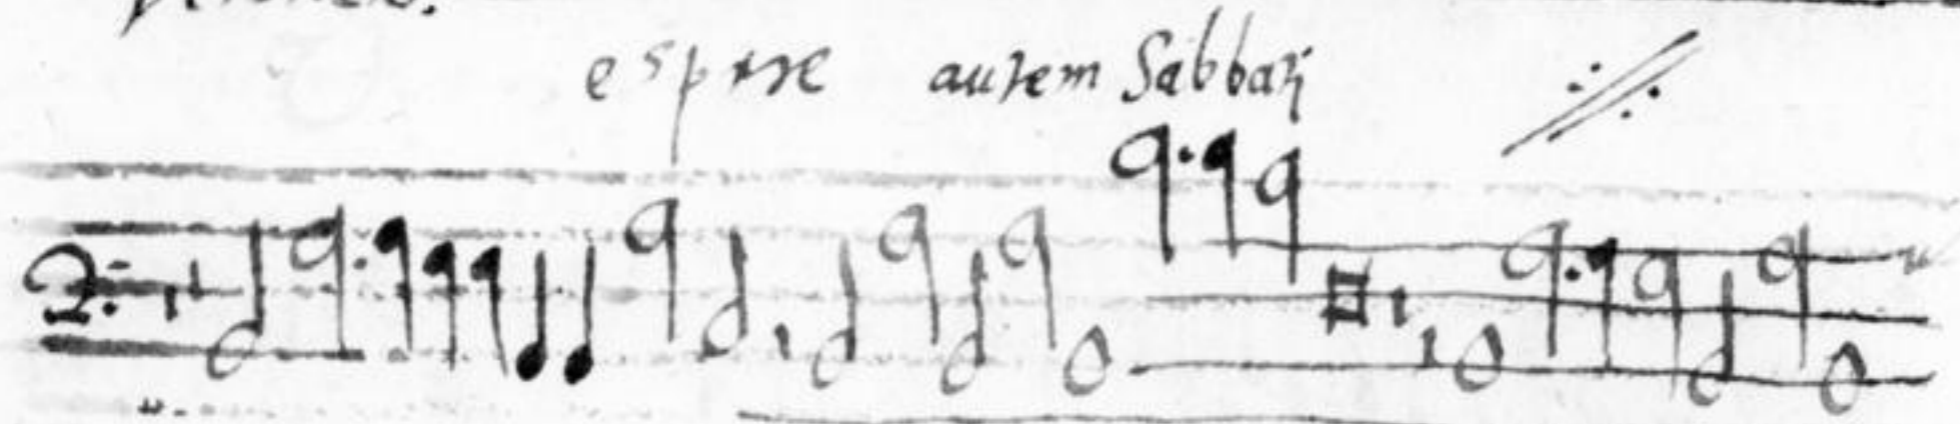 espere autem Sabbatj